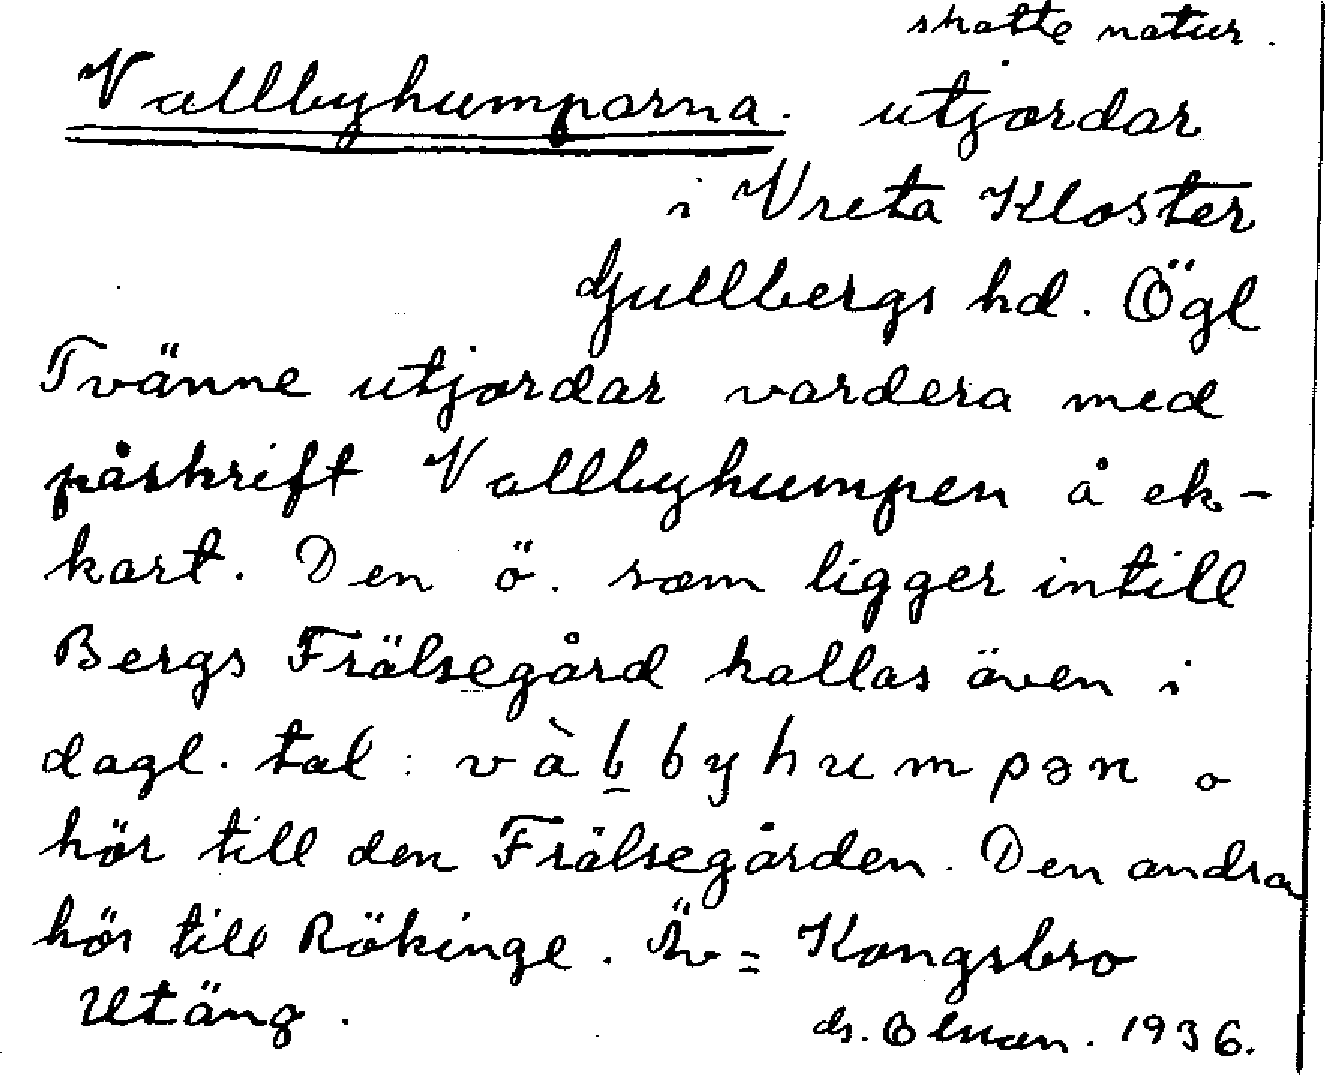 skatte natur.
Vallbyhumparna. utjordar
i Vreta Kloster
Gullbergs hd. Ögl
Tvänne utjordar vardera med
påskrift Vallbyhumpen å ek-
kart. Den ö. som ligger intill
Bergs Frälsegård kallas även i
dagl. tal: vàb byhumpən o
hör till den Frälsegården. Den andra
hör till Rökinge. Äv = Kongsbro
Utäng. 1936.